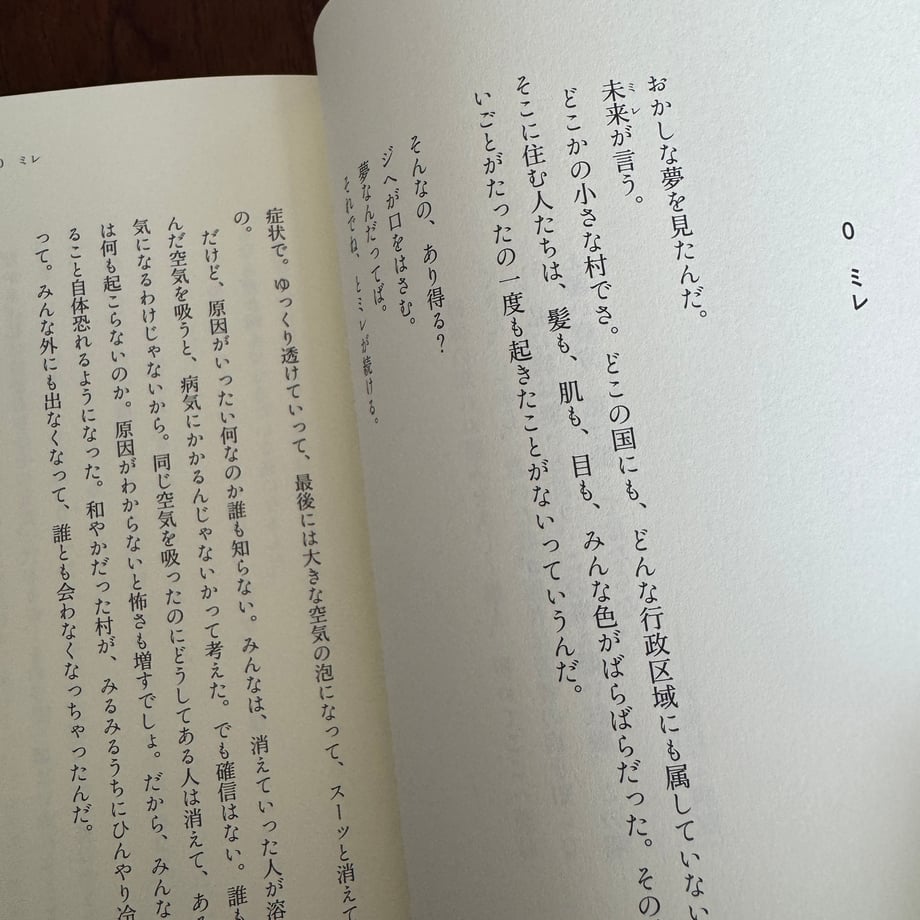 0 ミレ
おかしな夢を見たんだ。
ミレ
未来が言う。
どこかの小さな村でさ。どこの国にも、どんな行政区域にも属していない
そこに住む人たちは、髪も、肌も、目も、みんな色がばらばらだった。その
いごとがたったの一度も起きたことがないっていうんだ。
そんなの、あり得る？
ジヘが口をはさむ。
夢なんだってば。
それでね、とミレが続ける。
0 ミレ
症状で。ゆっくり透けていって、最後には大きな空気の泡になって、スーッと消えて
の。
だけど、原因がいったい何なのか誰も知らない。みんなは、消えていった人が溶
んだ空気を吸うと、病気にかかるんじゃないかって考えた。でも確信はない。誰も
気になるわけじゃないから。同じ空気を吸ったのにどうしてある人は消えて、ある
は何も起こらないのか。原因がわからないと怖さも増すでしょ。だから、みんな
ること自体恐れるようになった。和やかだった村が、みるみるうちにひんやり冷
って。みんな外にも出なくなって、誰とも会わなくなっちゃったんだ。